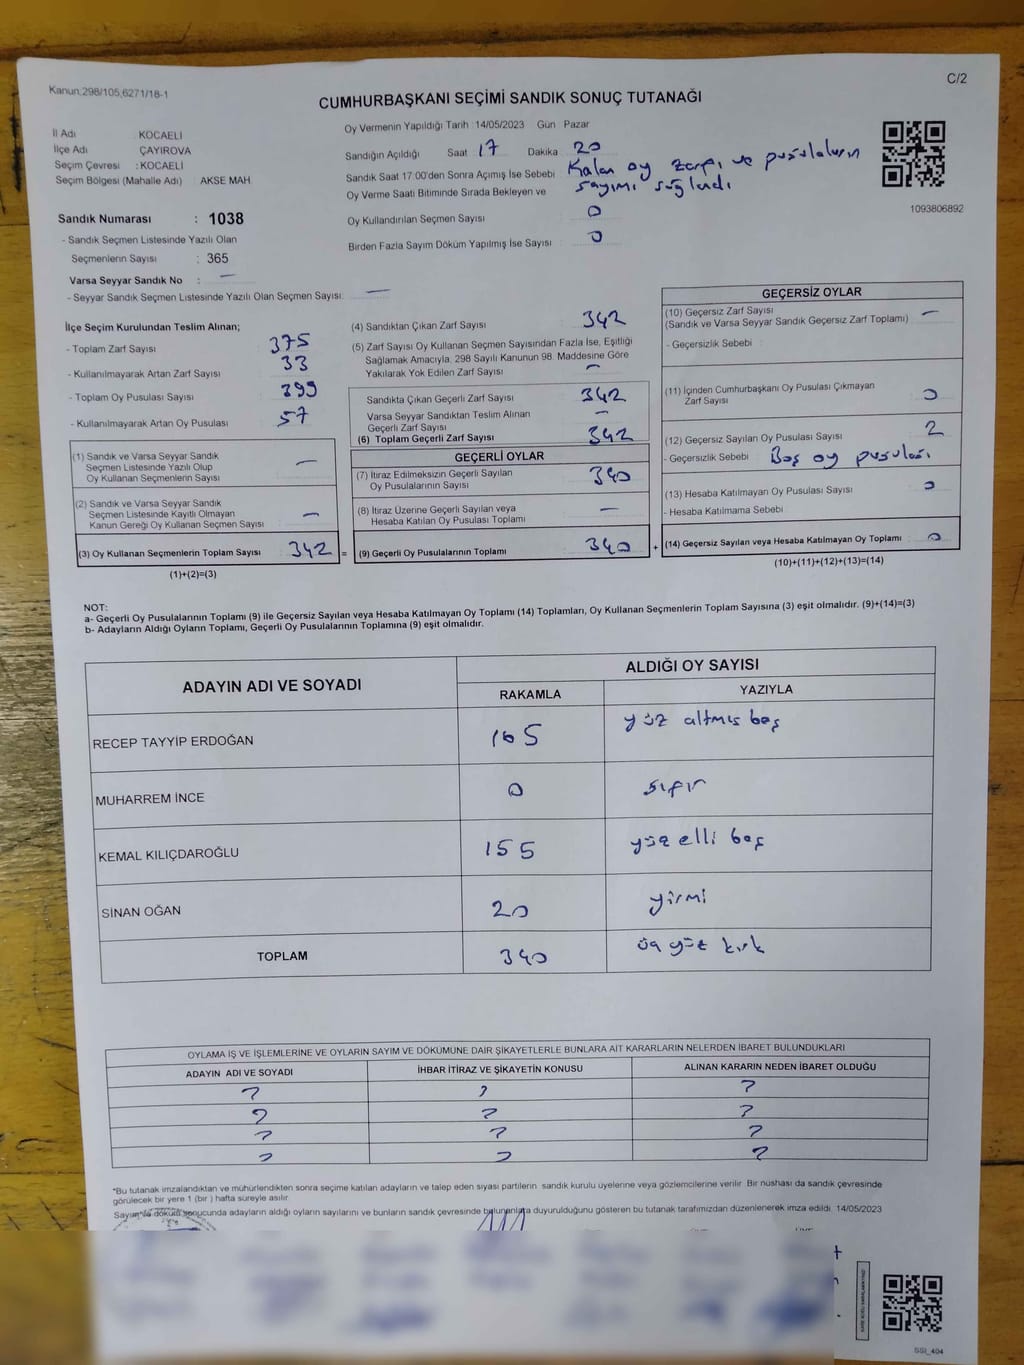 C/2
Kanun:298/105,6271/18-1
CUMHURBAŞKANI SEÇİMİ SANDIK SONUÇ TUTANAĞI
İl Adı : KOCAELİ
İlçe Adı : ÇAYIROVA
Seçim Çevresi : KOCAELİ
Seçim Bölgesi (Mahalle Adı) : AKSE MAH
Sandık Numarası : 1038
- Sandık Seçmen Listesinde Yazılı Olan
Seçmenlerin Sayısı : 365
Varsa Seyyar Sandık No : —
- Seyyar Sandık Seçmen Listesinde Yazılı Olan Seçmen Sayısı: —
Oy Vermenin Yapıldığı Tarih :14/05/2023 Gün Pazar
Sandığın Açıldığı Saat 17 Dakika 20
Sandık Saat 17:00'den Sonra Açımış İse Sebebi Kalan oy zarfı ve pusulaların
sayımı sağlandı
Oy Verme Saati Bitiminde Sırada Bekleyen ve
Oy Kullandırılan Seçmen Sayısı : 0
Birden Fazla Sayım Döküm Yapılmış İse Sayısı : 0
1093806892
İlçe Seçim Kurulundan Teslim Alınan;
- Toplam Zarf Sayısı : 375
- Kullanılmayarak Artan Zarf Sayısı : 33
- Toplam Oy Pusulası Sayısı : 399
- Kullanılmayarak Artan Oy Pusulası : 57
(1) Sandık ve Varsa Seyyar Sandık
Seçmen Listesinde Yazılı Olup
Oy Kullanan Seçmenlerin Sayısı : —
(2) Sandık ve Varsa Seyyar Sandık
Seçmen Listesinde Kayıtlı Olmayan
Kanun Gereği Oy Kullanan Seçmen Sayısı : —
(3) Oy Kullanan Seçmenlerin Toplam Sayısı : 342 =
(1)+(2)=(3)
(4) Sandıktan Çıkan Zarf Sayısı : 342
(5) Zarf Sayısı Oy Kullanan Seçmen Sayısından Fazla İse, Eşitliği
Sağlamak Amacıyla, 298 Sayılı Kanunun 98. Maddesine Göre
Yakılarak Yok Edilen Zarf Sayısı : —
Sandıkta Çıkan Geçerli Zarf Sayısı : 342
Varsa Seyyar Sandıktan Teslim Alınan
Geçerli Zarf Sayısı : —
(6) Toplam Geçerli Zarf Sayısı : 342
GEÇERLİ OYLAR
(7) İtiraz Edilmeksizin Geçerli Sayılan
Oy Pusulalarının Sayısı : 340
(8) İtiraz Üzerine Geçerli Sayılan veya
Hesaba Katılan Oy Pusulası Toplamı : —
(9) Geçerli Oy Pusulalarının Toplamı : 340 +
GEÇERSİZ OYLAR
(10) Geçersiz Zarf Sayısı —
(Sandık ve Varsa Seyyar Sandık Geçersiz Zarf Toplamı) :
- Geçersizlik Sebebi :
(11) İçinden Cumhurbaşkanı Oy Pusulası Çıkmayan
Zarf Sayısı : 0
(12) Geçersiz Sayılan Oy Pusulası Sayısı : 2
- Geçersizlik Sebebi : Boş oy pusulası
(13) Hesaba Katılmayan Oy Pusulası Sayısı : 0
- Hesaba Katılmama Sebebi
(14) Geçersiz Sayılan veya Hesaba Katılmayan Oy Toplamı : 0
(10)+(11)+(12)+(13)=(14)
NOT:
a- Geçerli Oy Pusulalarının Toplamı (9) ile Geçersiz Sayılan veya Hesaba Katılmayan Oy Toplamı (14) Toplamları, Oy Kullanan Seçmenlerin Toplam Sayısına (3) eşit olmalıdır. (9)+(14)=(3)
b- Adayların Aldığı Oyların Toplamı, Geçerli Oy Pusulalarının Toplamına (9) eşit olmalıdır.
ADAYIN ADI VE SOYADI ALDIĞI OY SAYISI
RAKAMLA YAZIYLA
RECEP TAYYİP ERDOĞAN 165 yüz altmış beş
MUHARREM İNCE 0 sıfır
KEMAL KILIÇDAROĞLU 155 yüz elli beş
SİNAN OĞAN 20 yirmi
TOPLAM 340 üç yüz kırk
OYLAMA İŞ VE İŞLEMLERİNE VE OYLARIN SAYIM VE DÖKÜMÜNE DAİR ŞİKAYETLERLE BUNLARA AİT KARARLARIN NELERDEN İBARET BULUNDUKLARI
ADAYIN ADI VE SOYADI İHBAR İTİRAZ VE ŞİKAYETİN KONUSU ALINAN KARARIN NEDEN İBARET OLDUĞU
*Bu tutanak imzalandıktan ve mühürlendikten sonra seçime katılan adayların ve talep eden siyasi partilerin sandık kurulu üyelerine veya gözlemcilerine verilir. Bir nüshası da sandık çevresinde
görülecek bir yere 1 (bir ) hafta süreyle asılır.
Sayım ve dökümü sonucunda adayların aldığı oyların sayılarını ve bunların sandık çevresinde bulunanlara duyurulduğunu gösteren bu tutanak tarafımızdan düzenlenerek imza edildi. 14/05/2023